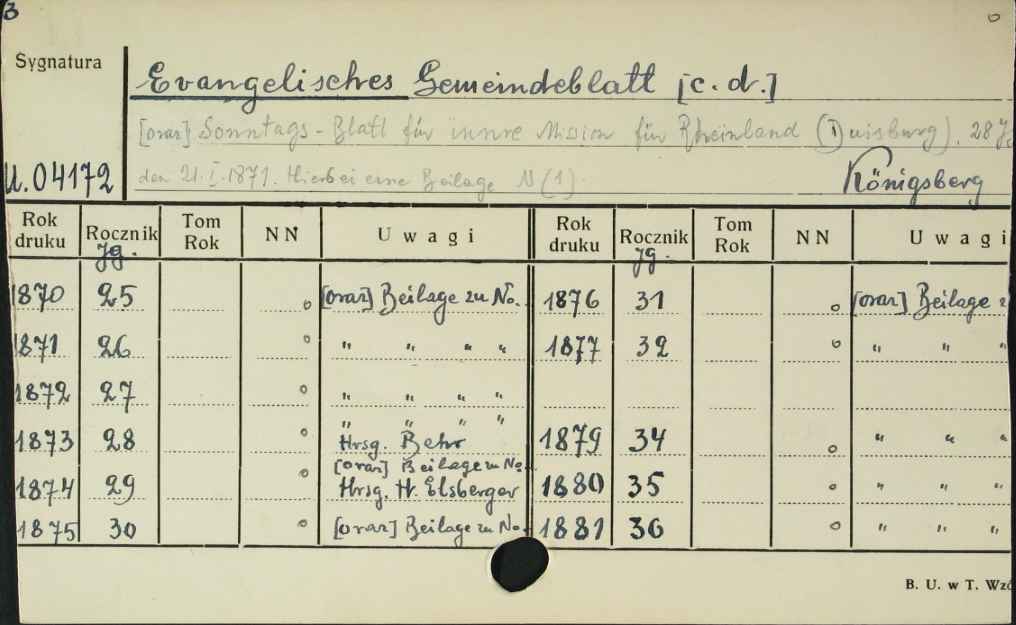 3
Sygnatura
Evangelisches Gemeindeblatt [c.d.]
[oraz] Sonntags-Blatt für innre Mission für Rheinland (Duisburg). 28
U.04172
den 21.I.1871. Hierbei eine Beilage N(1).
Königsberg
Rok druku Rocznik Jg. Tom Rok NN Uwagi Rok druku Rocznik Jg. Tom Rok NN Uwagi
1870 25 o [oraz] Beilage zu No. 1876 31 o [oraz] Beilage z
1871 26 o " " " " 1877 32 o " " "
1872 27 o " " " "
" " " "
1873 28 o Hrsg. Behr 1879 34 o " " "
[oraz] Beilage zu No.
1874 29 o Hrsg. H. Elsberger 1880 35 o " " "
1875 30 o [oraz] Beilage zu No. 1881 36 o " " "
B. U. w T. Wzó